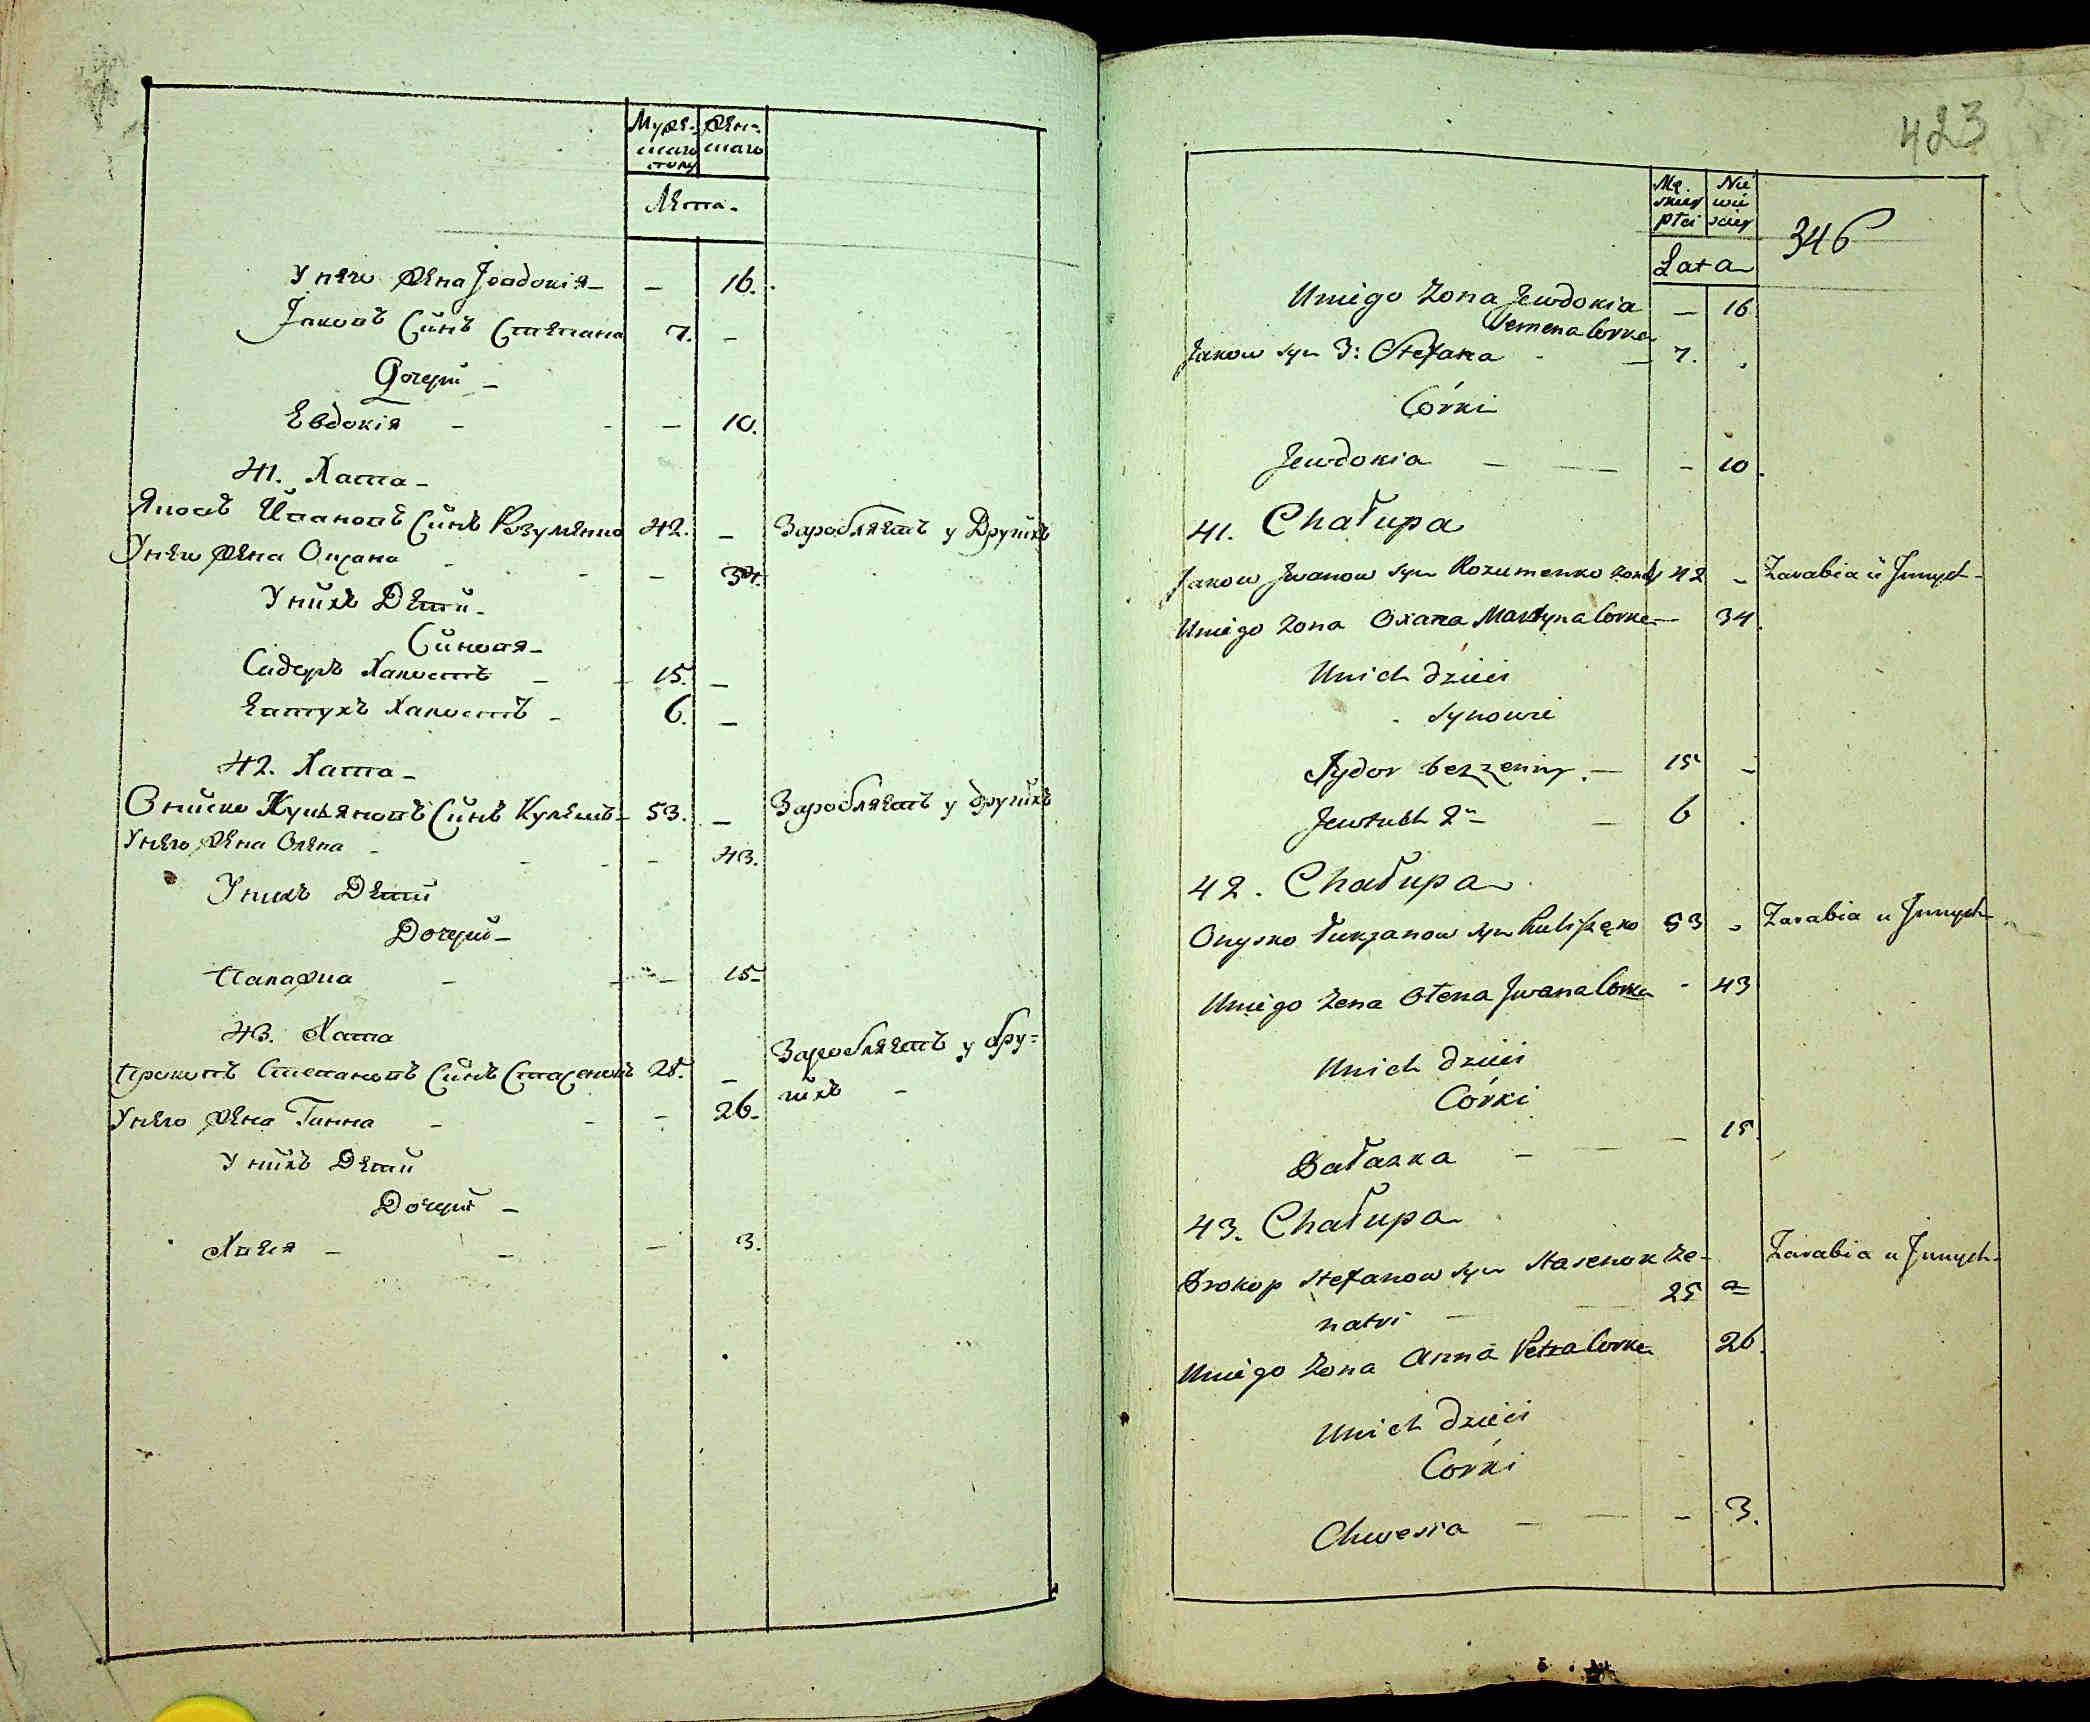 Муже- Жен-
ска скаго
полу
Лета.
У него жена Јевдокія - - 16.
Јаковъ Синъ Степана 7. -
Дочери -
Евдокія - - - 10.
41. Хата -
Яковъ Ивановъ Синъ Розуменко 42. - Заробляетъ у Другихъ
У него жена Оксана - - - 34.
У нихъ Дети -
Синовя -
Сидоръ Холостъ - - 15. -
Евтухъ Холостъ - 6. -
42. Хата -
Ониско Лукьяновъ Синъ Кулешъ - 53. - Заробляетъ у другихъ
У него жена Олена - - - - 43.
У нихъ Дети
Дочери -
Палажка - - - 15 -
43. Хата
Прокопъ Степановъ Синъ Стасенокъ 25. - Заробляетъ у дру=
гихъ -
У него жена Ганна - - - 26 -
У нихъ Дети
Дочери -
Хвеся - - - 3.
423
Mę. Nie
skiey wie
płci sciey
346
Lata
U niego Żona Jewdokia - 16
Semena Corka
Jakow syn 3: Stefana - - 7.
Córki
Jewdokia - - - 10.
41. Chałupa
Jakow Jwanow syn Rozumenko żonaty 42 - Zarabia u Jnnych -
U niego Żona Oxana Martyna Corka - 34.
U nich dzieci
Synowie
Sydor bezżenny. - 15 -
Jewtuch 2n - - 6 .
42. Chałupa
Onysko Łukjanow syn Kuliszęko 53 - Zarabia u Jnnych -
U niego Żena Ołena Jwana Corka - 43
U nich dzieci
Córki
Pałazka - - - 15.
43. Chałupa
Prokop Stefanow syn Stasenok że- Zarabia u Jnnych -
natei - 25 =
U niego Żona Anna Petra Corka 26.
U nich dzieci
Córki
Chwesia - - - 3.